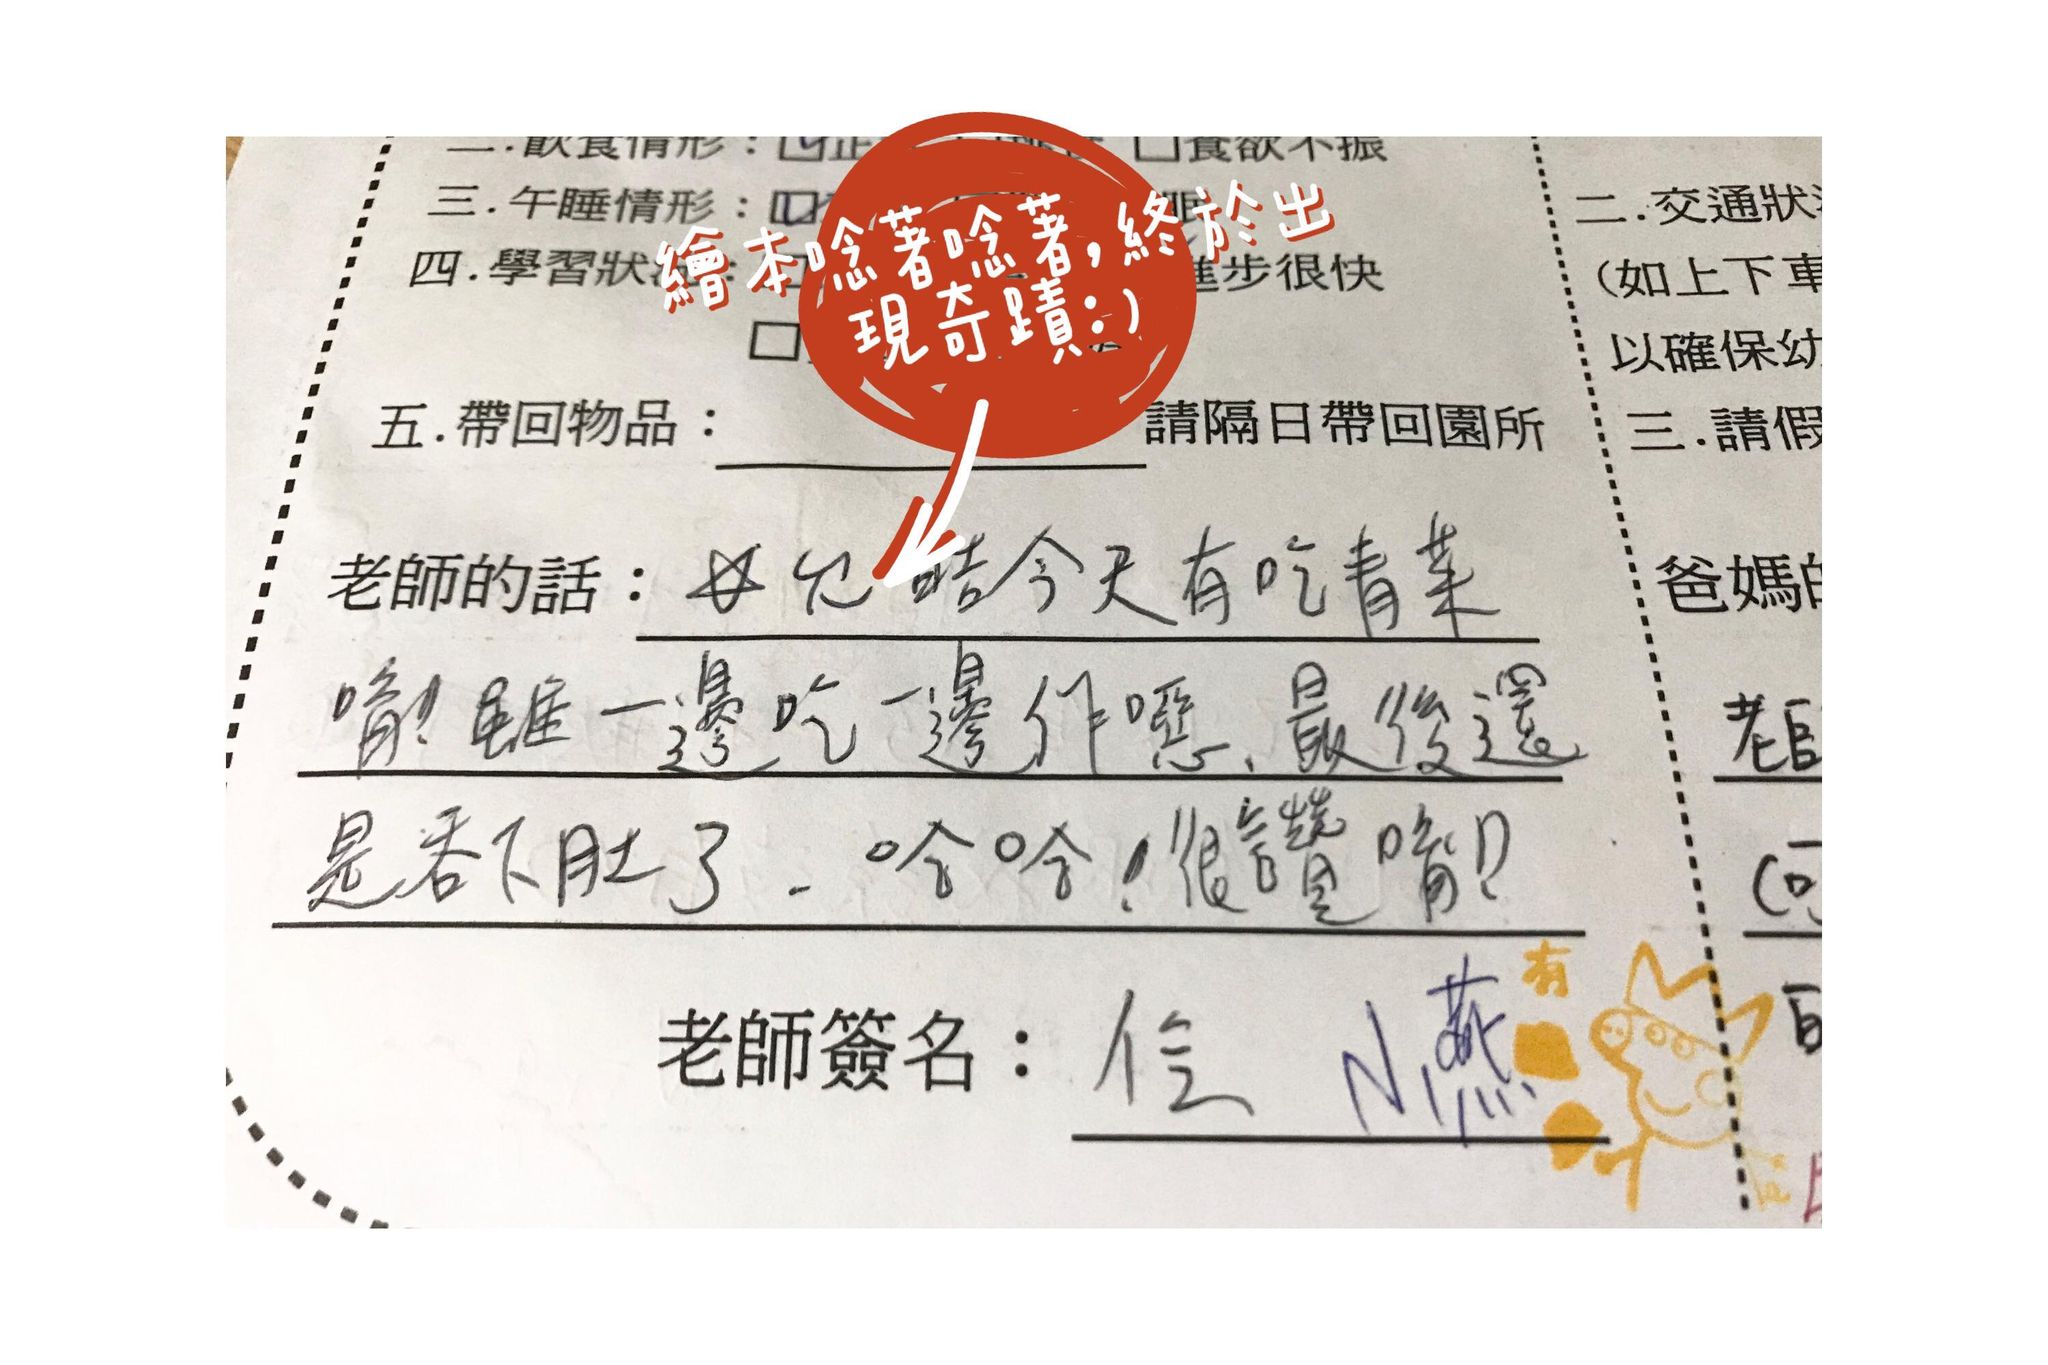 二.飲食情形：☑正 □食欲不振
三.午睡情形：☑ 眠
四.學習狀況：□ 進步很快
□
繪本唸著唸著，終於出
現奇蹟：）
五.帶回物品： 請隔日帶回園所
老師的話： 皓今天有吃青菜
唷！雖一邊吃一邊作噁、最後還
是吞下肚了. 哈哈！很讚唷！
老師簽名： 燕
有
二.交通狀況
(如上下車
以確保幼
三.請假
爸媽的
老師